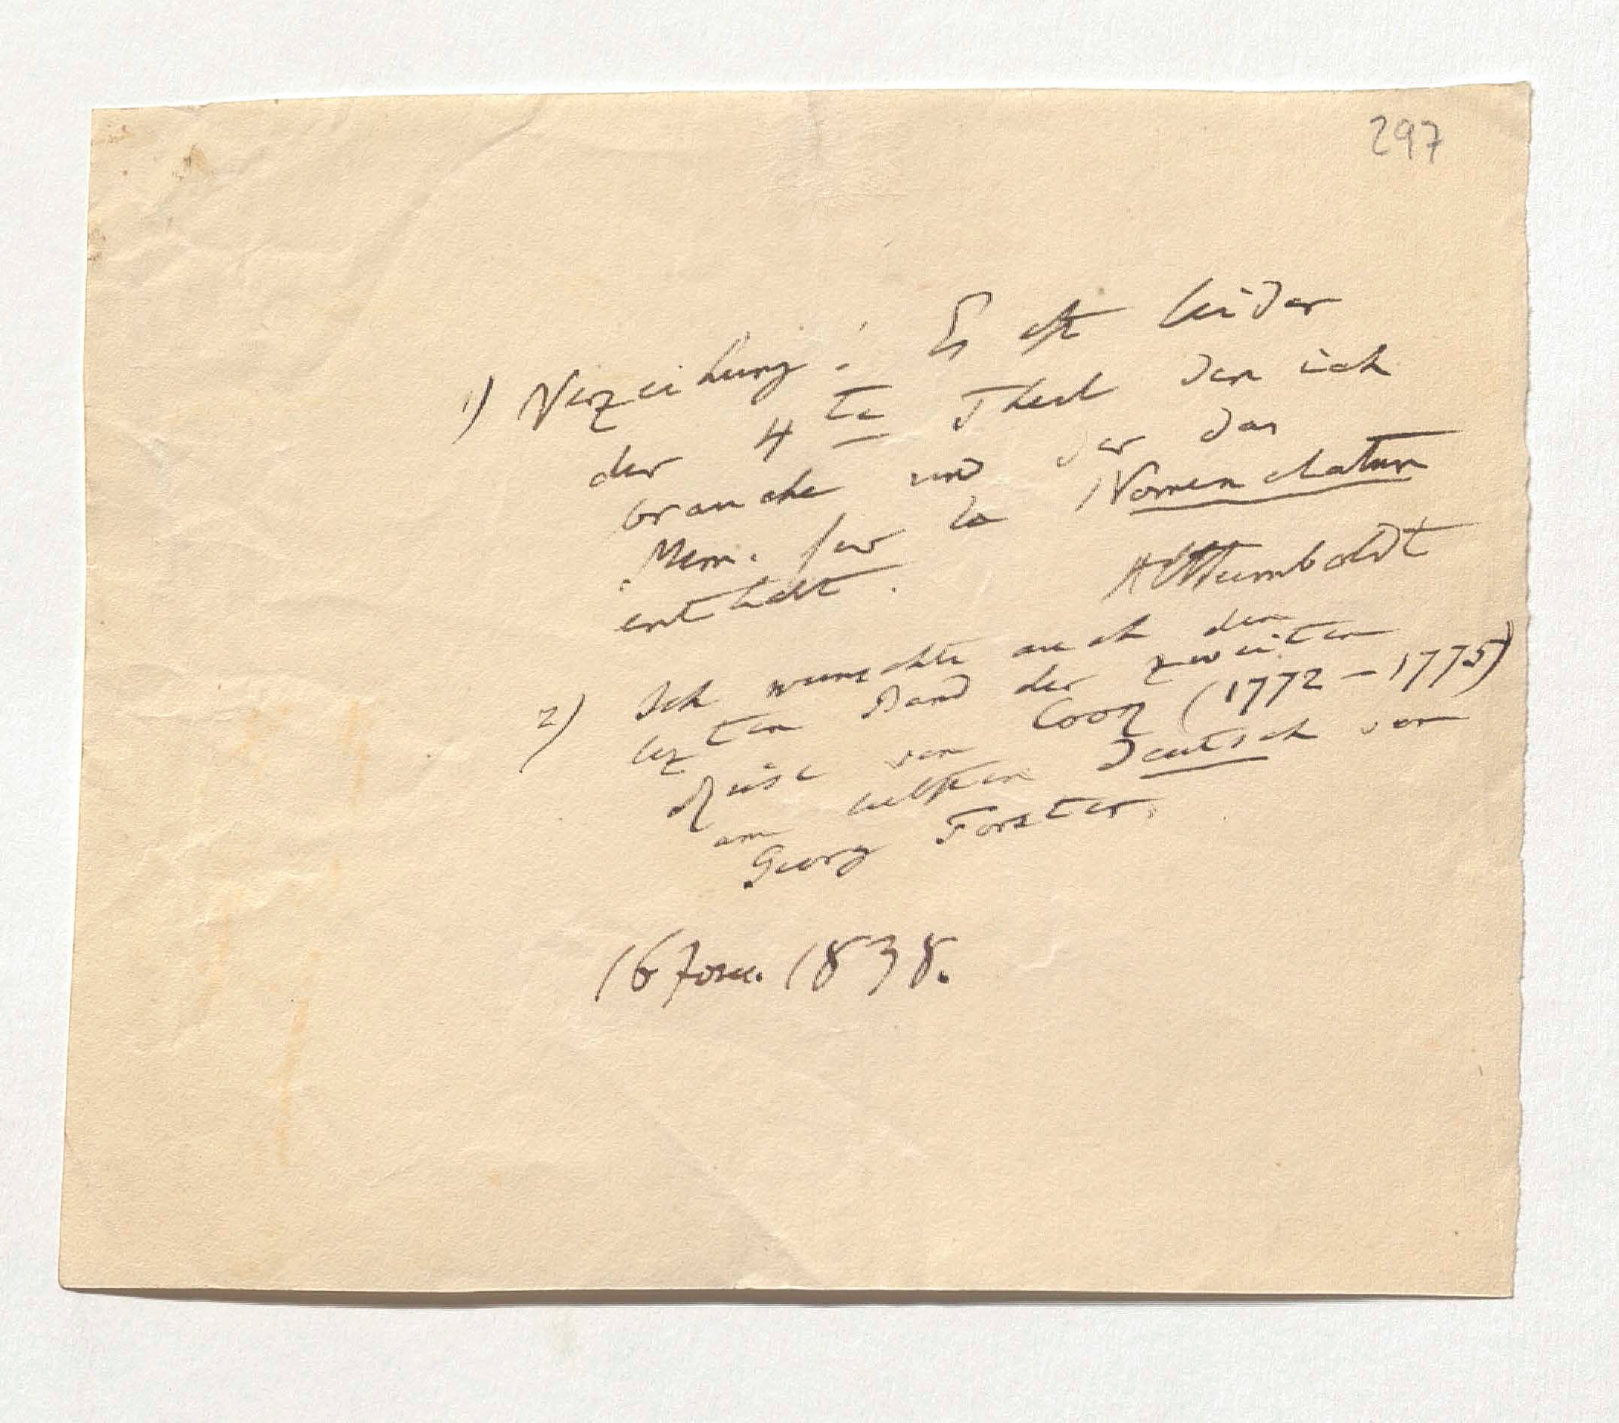 297
1) Verzeihung! Es ist leider
der 4te Theil den ich
brauche und der das
Mem. sur la Nomenclature
enthält.
AlHumboldt
2) Ich wünschte auch den
lezten Band der zweiten
Reise von Cook (1772-1775)
am liebsten deutsch von
Georg Forster.
16 1838.